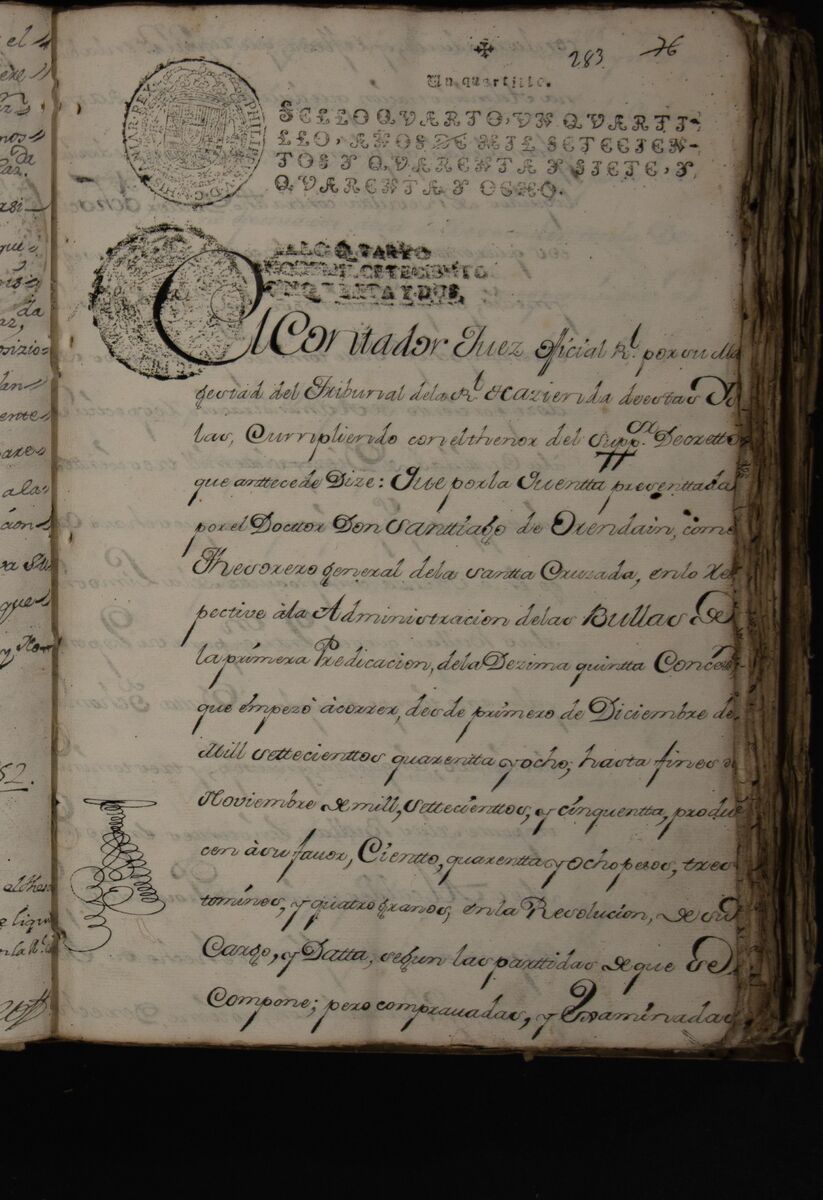 283 76
Un quartillo.
SELLO QVARTO, VN QVARTI-
LLO, AÑOS DE MIL SETECIEN-
TOS Y QVARENTA Y SIETE, Y
QVARENTA Y OCHO.
PHILIPPUS V D G HISPANIAR REX
SELLO QVARTO
MIL SETECIENTO
CINQVENTA Y DOS,
El Contador Juez official Rl. por su Ma
gestad del Tribunal dela Rl. Hazienda deestas Ys
las, Cumpliendo con el thenor del Suppor. Decretto
que anttecede Dize: Que por la Quentta presenttada
por el Docttor Don Santtiago de Orendain, como
Thesorero general dela Santta Cruzada, en lo Res
pective à la Administracion delas Bullas de
la primera Predicacion, dela Dezima quintta Conces.
que empezó à correr, desde primero de Diciembre de
Mill settecienttos quarentta y ocho, hasta fines de
Noviembre de mill, settecienttos, y cinquentta, produ
cen à su favor, Cientto, quarentta y ocho pesos, tres
tomines, y quatro granos, en la Resolucion, de su
Cargo, y Datta, segun las parttidas de que se
Compone; pero comprauadas, y Examinadas